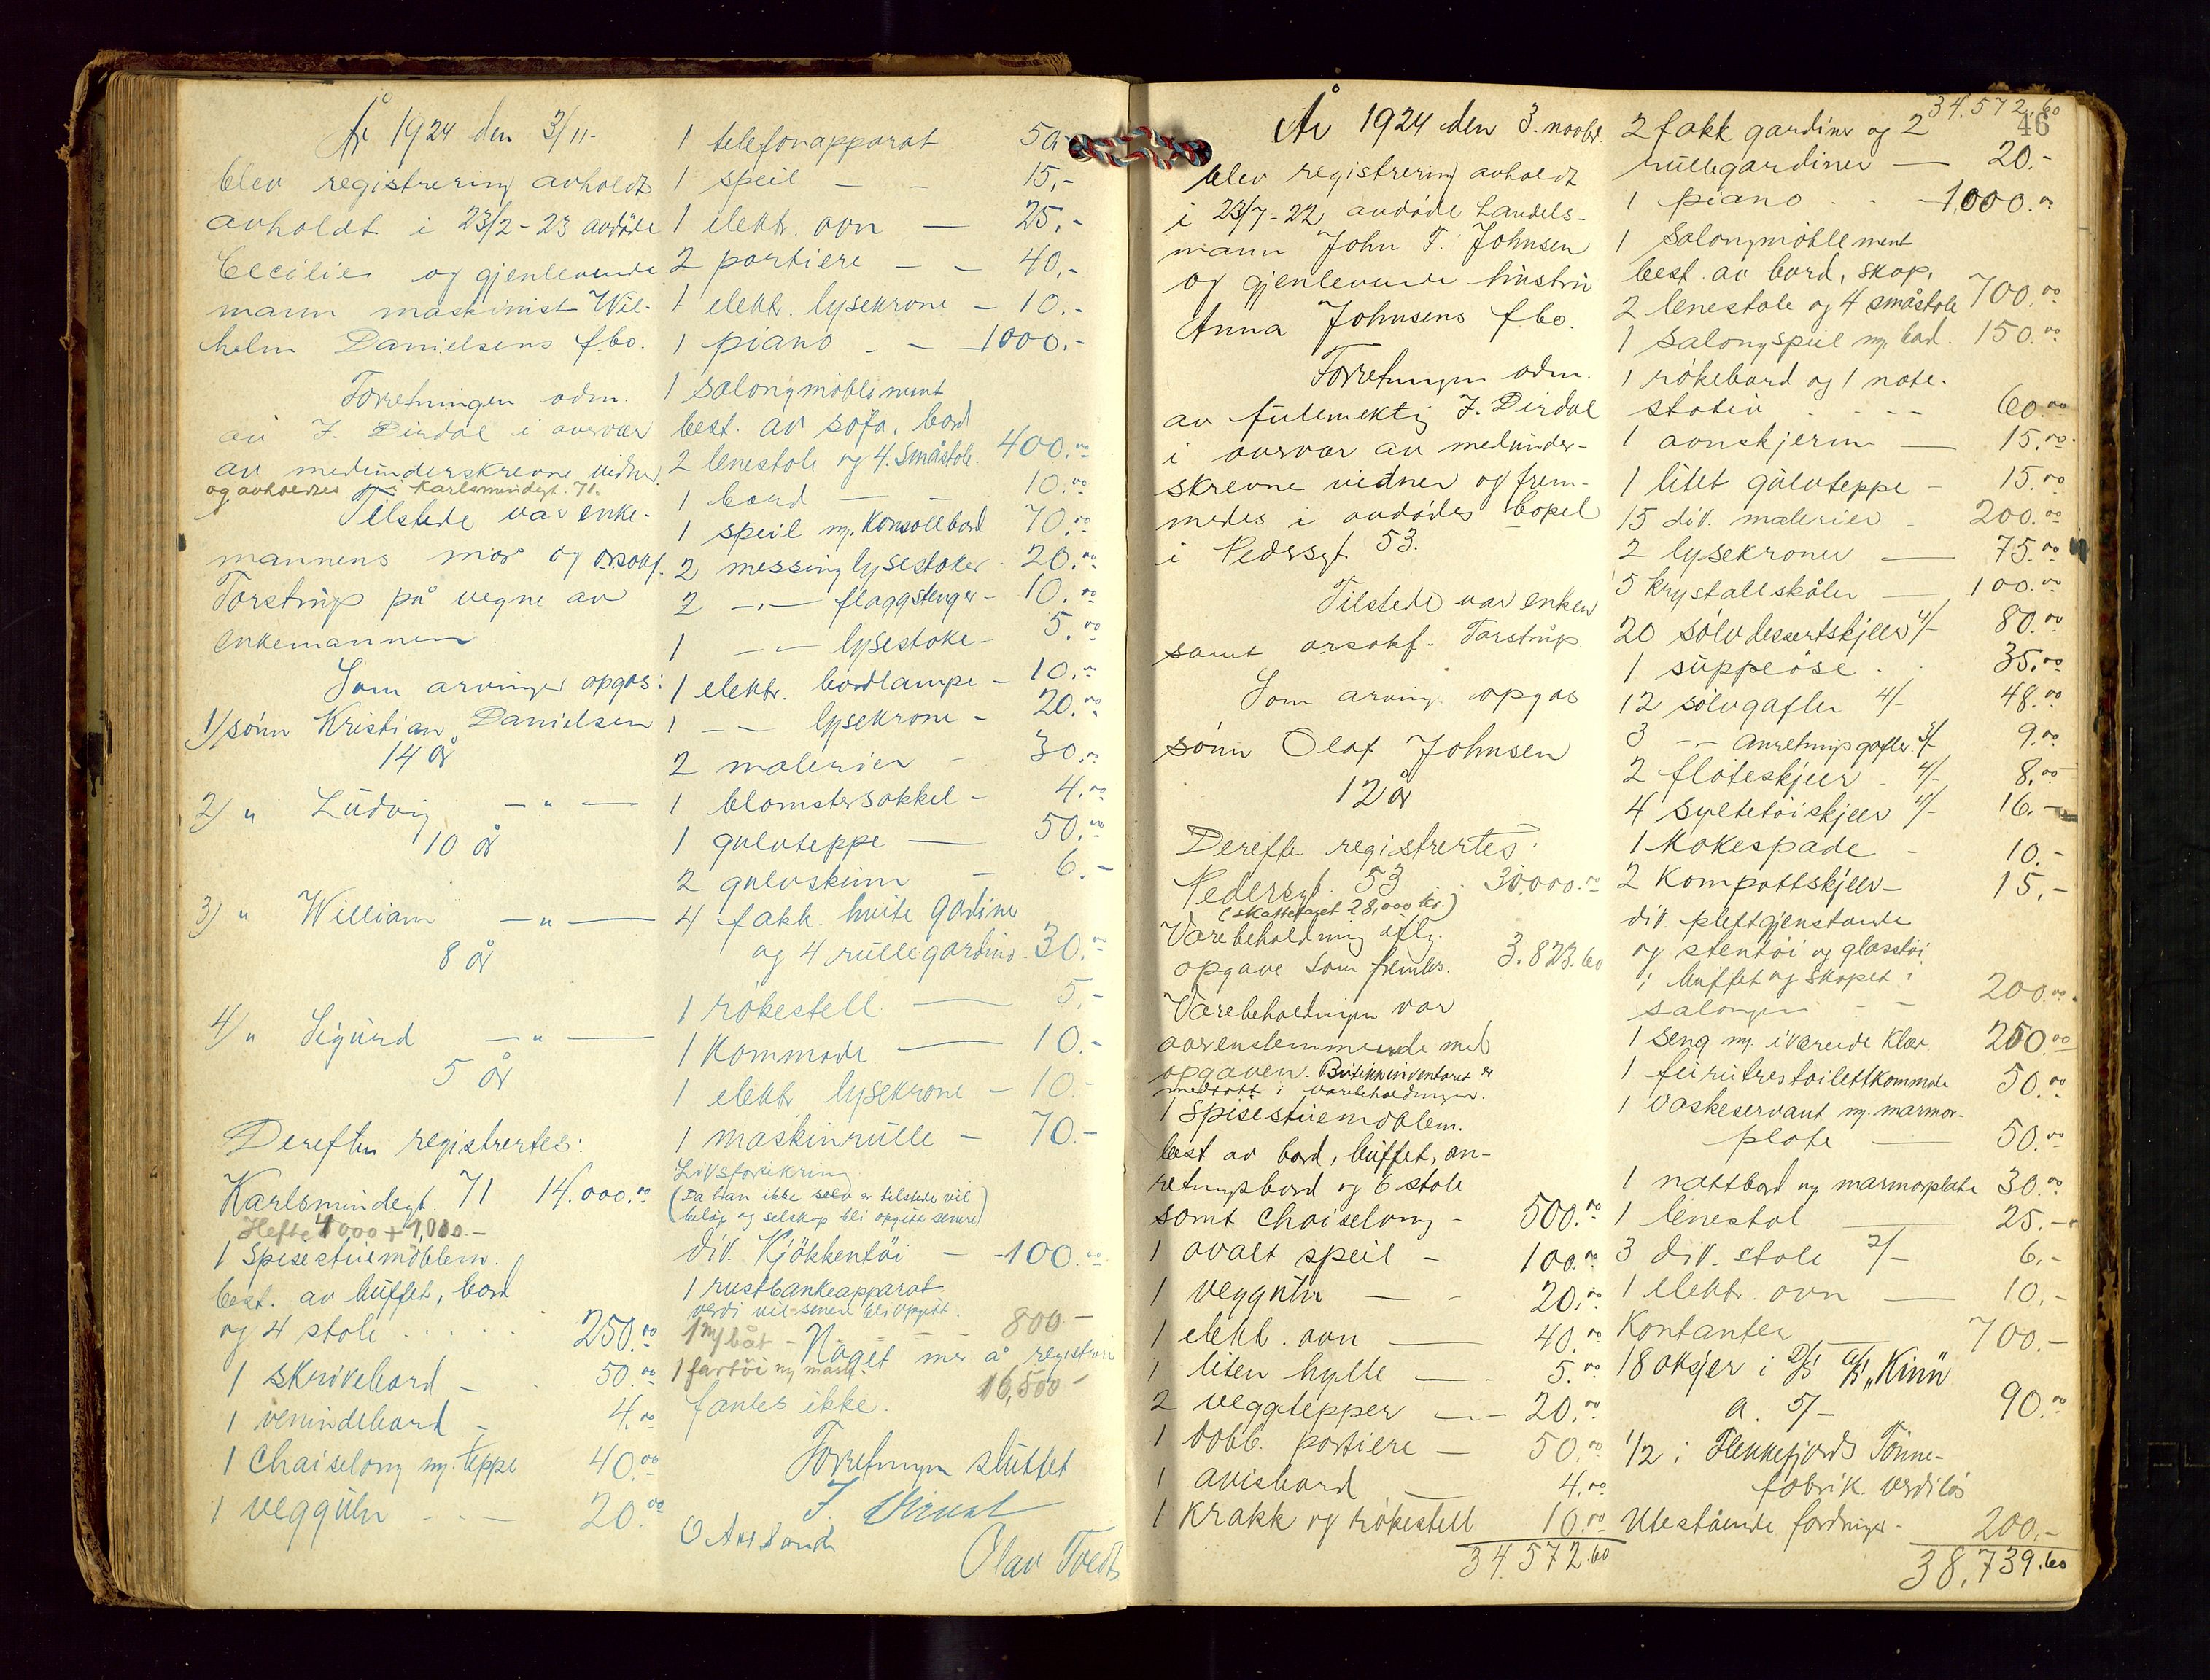 År 1924 den 3/11-
blev registrering avholdt
avholdt i 23/2-23 avdöde
Cecilie og gjenlevende
mann maskinist Wil-
helm Danielsens f.bo.
Forretningen adm.
av J. Dirdal i overvær
av medunderskrevne vidner
og avholdtes i Karlsmindegt. 71.
Tilstede var enke-
mannens mor og orsakf.
Torstrup på vegne av
enkemannen.
Som arvinger opgas:
1/ sönn Kristian Danielsen
14 år
2) " Ludvig — " —
10 år
3) " William — " —
8 år
4) " Sigurd — " —
5 år
Derefter registrertes:
Karlsmindegt. 71 14.000.00
Hefte 4000 + 1,000.-
1 Spisestuemöblem.
best. av buffet, bord
og 4 stole . . . . 250.00
1 skrivebord - . 50.00
1 venindebord - 4.00
1 Chaiselong m. teppe 40.00
1 veggühr . . — 20.00
1 telefonapparat 50.-
1 speil — - 15.-
1 elektr. ovn — 25.-
2 portiere - - 40.-
1 elektr. lysekrone - 10.-
1 piano - - 1000.-
1 salongmöblement
best. av sofa, bord
2 lenestole og 4. småstole. 400.00
1 bord — - 10.00
1 speil m. Konsollbord 70.00
2 messing lysestaker . 20.00
2 -"- flaggstenger - 10.00
1 -"- lysestake - 5.00
1 elektr. bordlampe - 10.00
1 - - lysekrone - 20.00
2 malerier - 30.00
1 blomstersokkel - 4.00
1 gulvteppe — 50.00
2 gulvskinn - 6.-
4 fakk. hvite gardiner
og 4 rullegardiner. 30.00
1 rökestell — 5.-
1 Kommode — 10.-
1 elektr. lysekrone - 10.-
1 maskinrulle - 70.-
Livsforsikring
(Da han ikke selv er tilstede vil
belöp og selskap bli opgitt senere)
div. Kjökkentöi - 100.00
1 rustbankeapparat
verdi vil senere bli opgitt.
1 m/ båt - 800 -
Noget mer å registrere
1 fartöi m/ mask. 16,500 -
fantes ikke.
Forretningen sluttet
J. Dirdal
O Aarstand
Olav Tvedt
46
År 1924 den 3. novbr.
blev registrering avholdt
i 23/7-22 avdöde Handels-
mann John T. Johnsen
og gjenlevende hustru
Anna Johnsens fbo.
Forretningen adm.
av fulmektig J. Dirdal
i overvær av medunder-
skrevne vidner og frem-
medes i avdödes bopel
i Pedersgt 53.
Tilstede var enken
samt orsakf. Torstrup.
Som arving opgas
sönn Olaf Johnsen
12 år
Derefter registrertes:
Pedersgt. 53 . 30,000.00
(skattetaget 28,000 kr.)
Varebeholdning iflg.
opgave som fremlis. 3.823.60
Varebeholdningen var
overenstemmende med
opgaven. Butikkinventaret er
medtatt i varebeholdningen.
1 Spisestuemöblem.
best av bord, buffet, an-
retningsbord og 6 stole
samt Chaiselong - 500.00
1 ovalt speil - 100.00
1 veggühr — - 20.00
1 elekt. ovn — 40.00
1 liten hylle — - 5.00
2 veggtepper — - 20.00
1 dobb. portiere — 50.00
1 avisbord — 4.00
1 Krakk og rökestell 10.00
34.572.60
34.572.60
2 fakk gardiner og 2
rullegardiner — 20.-
1 piano . . - 1.000.00
1 Salongmöblement
best. av bord, skap,
2 lenestole og 4 småstole 700.00
1 Salongspeil m. bord. 150.00
1 rökebord og 1 note-
stativ . . - - 60.00
1 ovnskjerm — 15.00
1 litet gulvteppe - 15.00
15 div. malerier - 200.00
2 lysekroner — 75.00
5 Krystallskåler — 100.00
20 sölvdessertskjeer 4/- 80.00
1 suppeöse . . 35.00
12 sölvgafler 4/- 48.00
3 - - Anretningsgafler 3/- 9.00
2 flöteskjeer - 4/- 8.00
4 syltetöiskjeer 4/- 16.-
1 Kakespade - 10.-
2 Kompottskjeer - 15.-
div. plettgjenstande
og stentöi og glasstöi
i buffet og skapet i
salongen - - 200.00
1 seng m. iværende klær. 250.00
1 furutres toilettkommode 50.00
1 vaskeservant m. marmor-
plate — 50.00
1 nattbord m. marmorplate 30.00
1 lenestol — 25.-
3 div. stole 2/- 6.-
1 elektr. ovn — 10.-
Kontanter — 700.-
18 aksjer i D/S A/S "Kinn"
a. 5/- 90.00
1/2 i Flekkefjords Tönne-
fabrik. verdilös
Utestående fordringer - 200.-
38,739.60